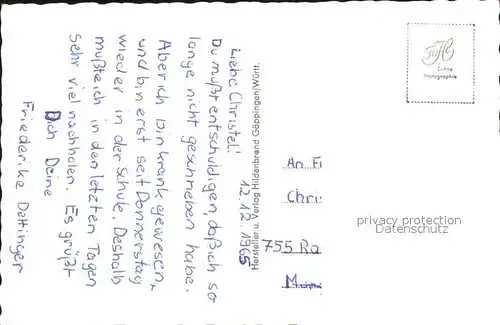 12.12.1965
Liebe Christel.
Du mußt entschuldigen, daß ich so
lange nicht geschrieben habe.
Aber ich bin krank gewesen,
und bin erst seit Donnerstag
wieder in der Schule. Deshalb
mußte ich in den letzten Tagen
sehr viel nachholen. Es grüßt
Dich Deine
Friederike Dettinger
Hersteller u. Verlag Hildenbrand Göppingen/Württ.
Echte
Photographie
An F
Chri
755 Ra
privacy protection
Datenschutz